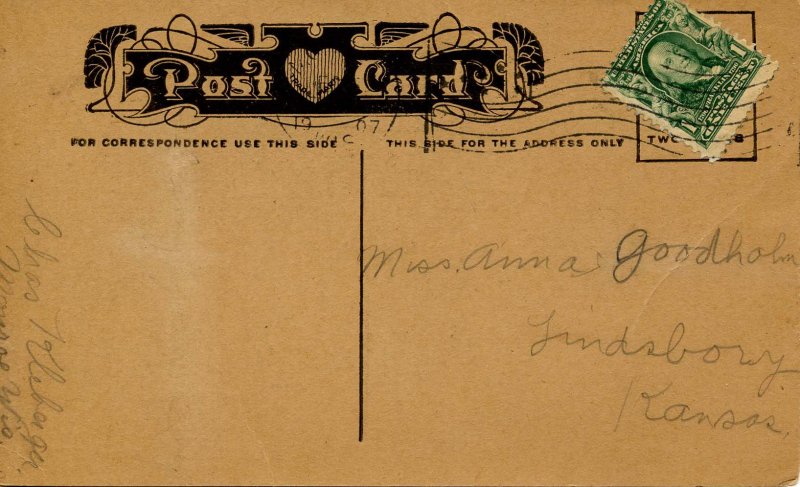 Post Card
19 07
WIS
FOR CORRESPONDENCE USE THIS SIDE
THIS SIDE FOR THE ADDRESS ONLY
TWO
Miss. Anna Goodholm
Lindsborg
Kansas.
Chas
Monroe Wis.